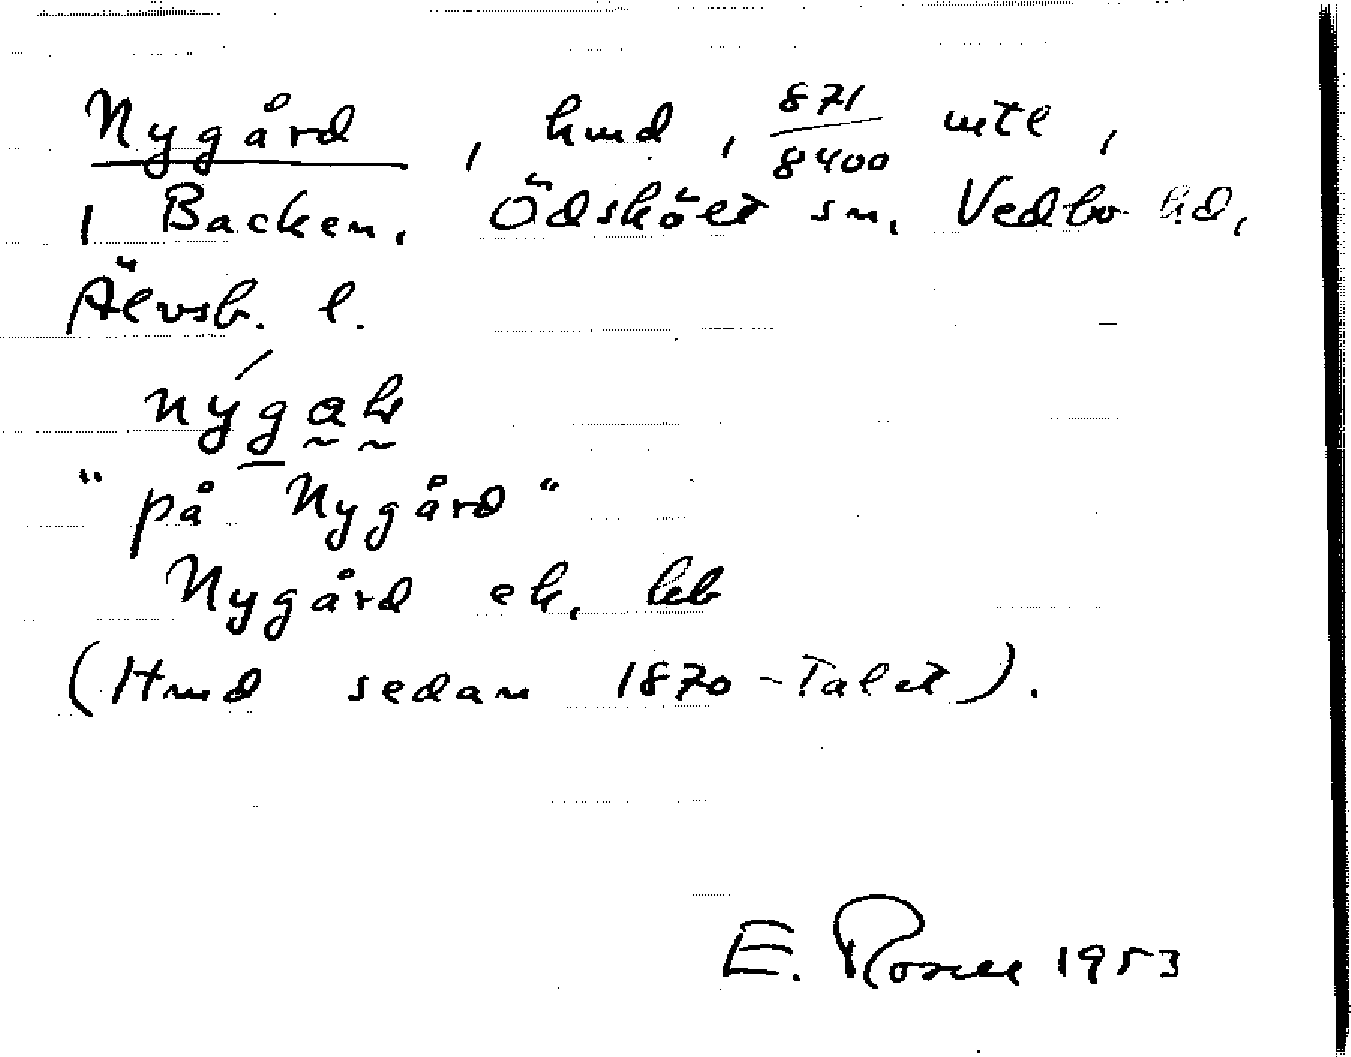 Nygård, hmd, 871/8400 mtl,
i Backen, Ödskölt sn, Vedbo hd,
Älvsb. l.
"på Nygård"
Nygård ek. kb
(Hmd sedan 1870-talet).
E. Rosell 1953